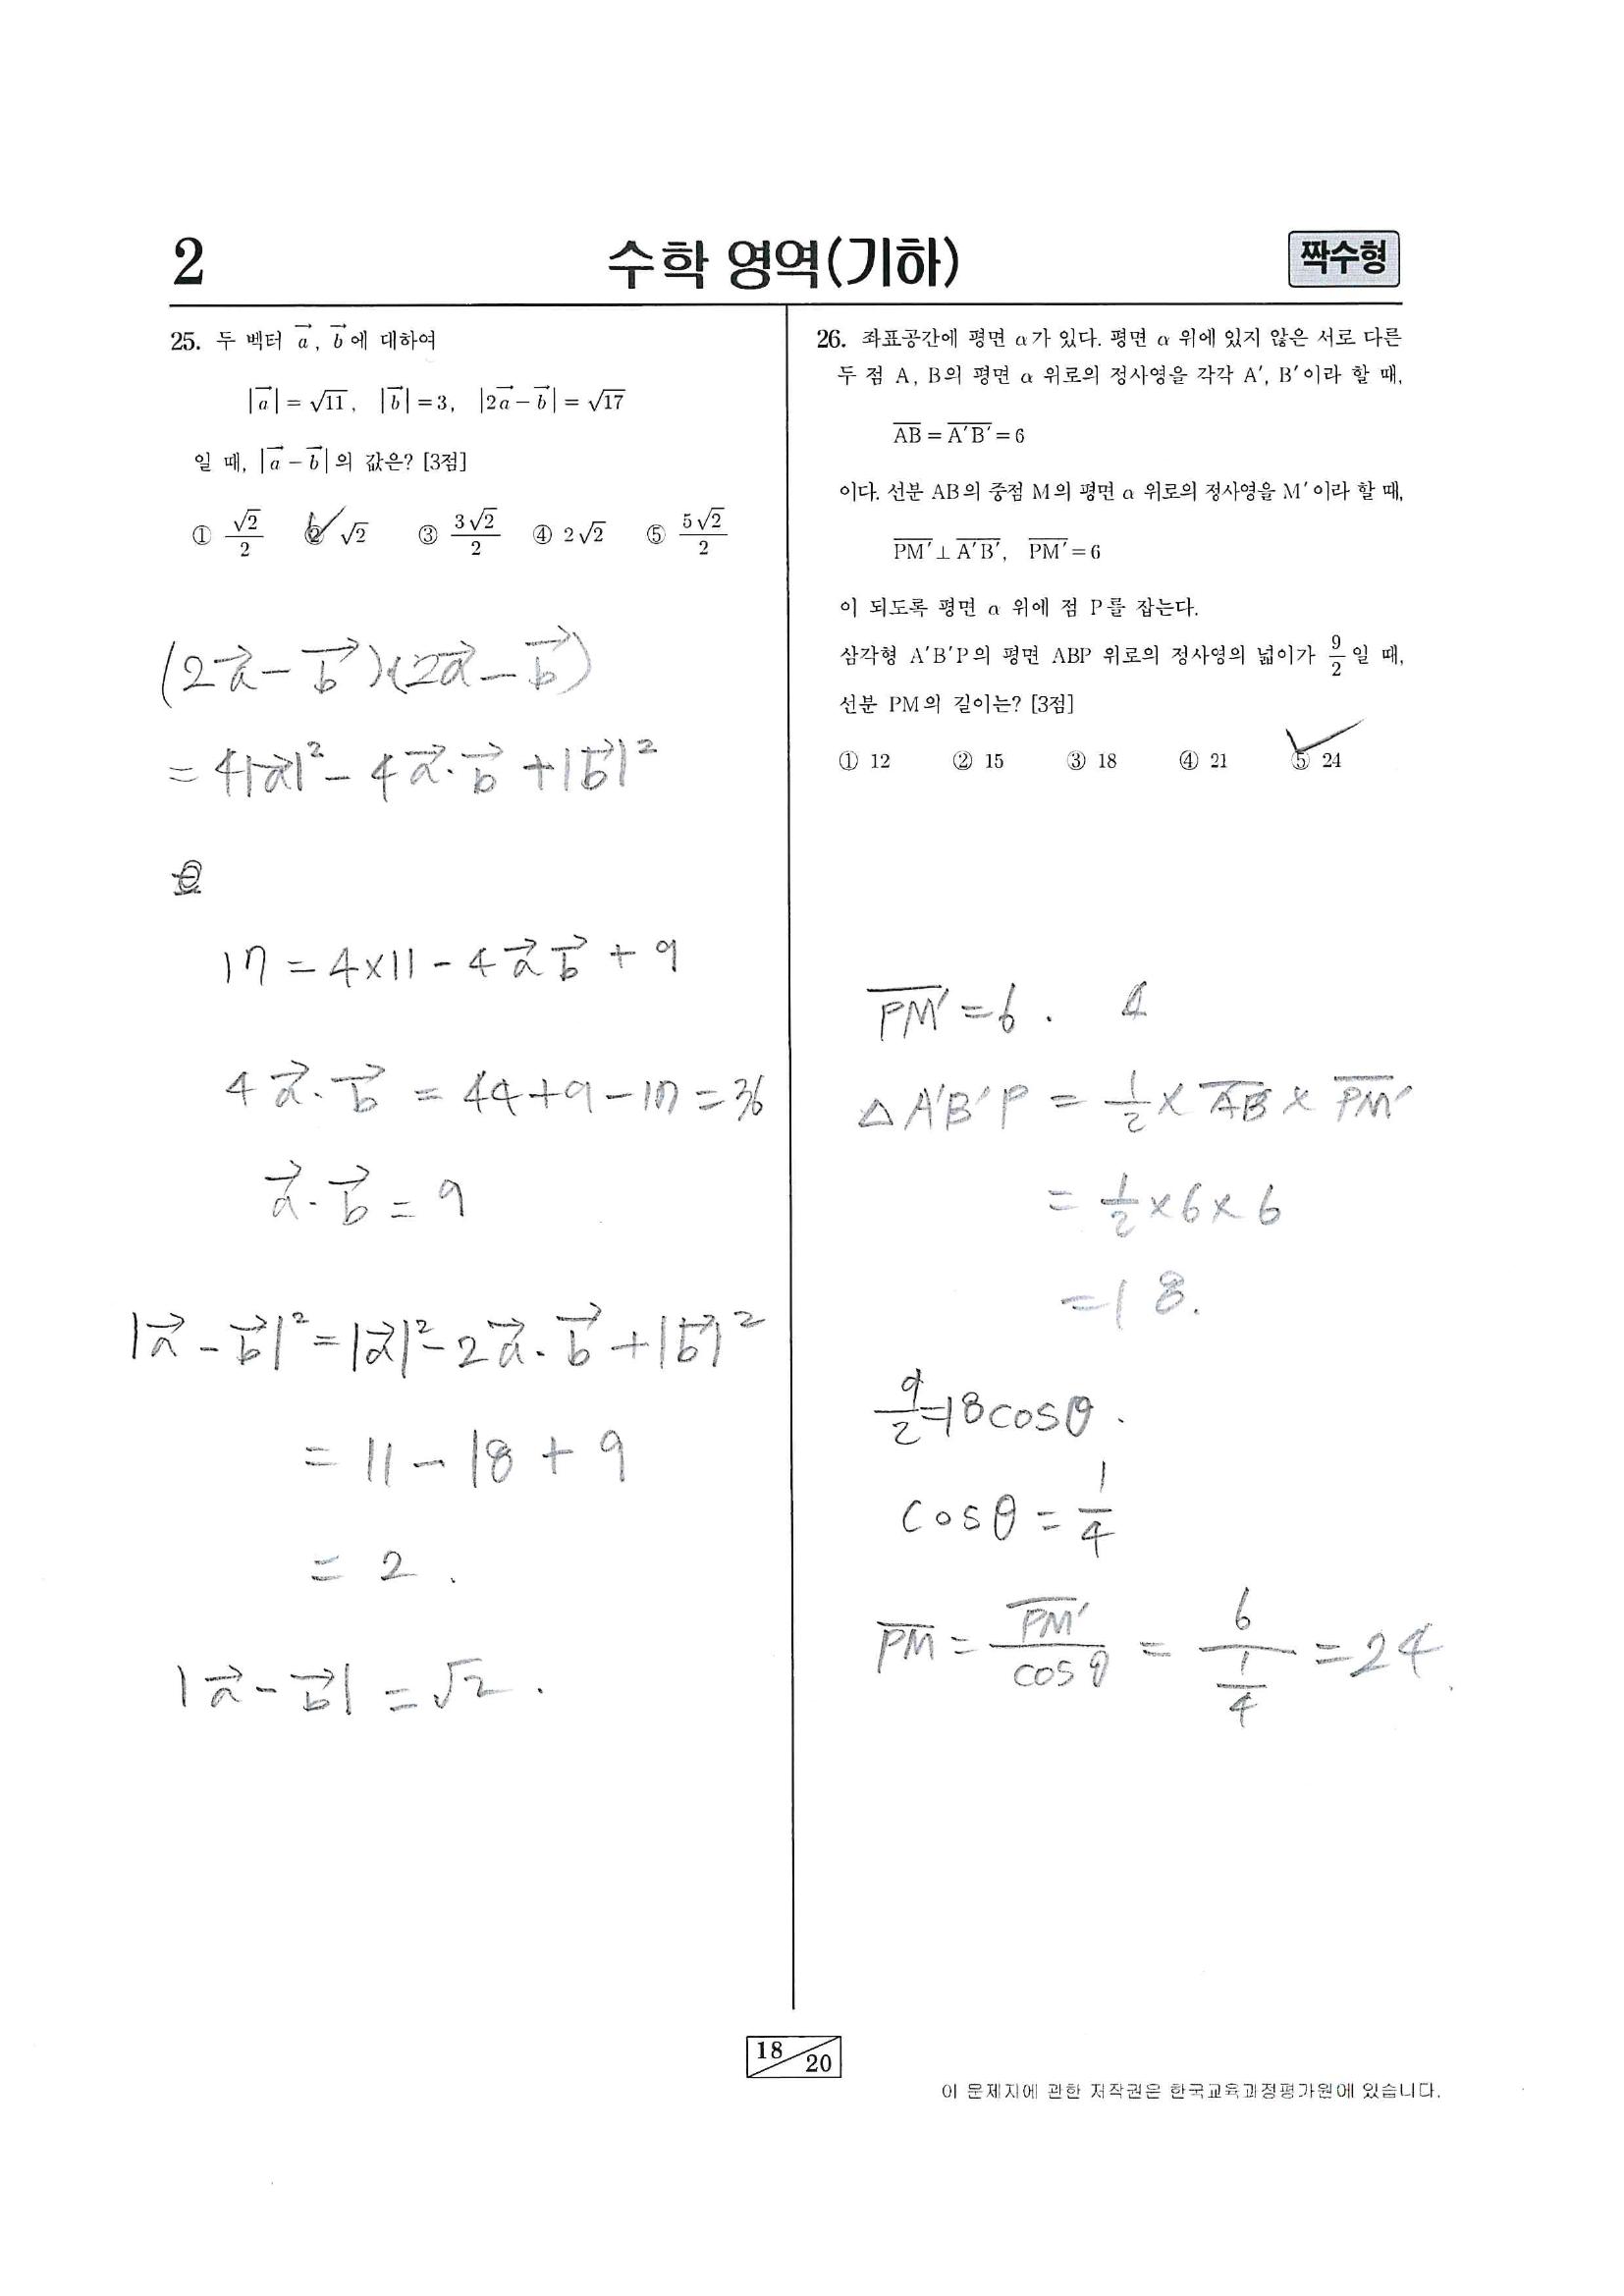 2
수학 영역(기하)
짝수형
25. 두 벡터 a⃗, b⃗에 대하여
|a⃗| = √11, |b⃗| = 3, |2a⃗ − b⃗| = √17
일 때, |a⃗ − b⃗|의 값은? [3점]
① √2/2 ② √2 ③ 3√2/2 ④ 2√2 ⑤ 5√2/2
(2a⃗ − b⃗)·(2a⃗ − b⃗)
= 4|a⃗|² − 4a⃗·b⃗ + |b⃗|²
17 = 4×11 − 4a⃗ b⃗ + 9
4a⃗·b⃗ = 44+9−17 = 36
a⃗·b⃗ = 9
|a⃗ − b⃗|² = |a⃗|² − 2a⃗·b⃗ + |b⃗|²
= 11 − 18 + 9
= 2.
|a⃗ − b⃗| = √2.
26. 좌표공간에 평면 α가 있다. 평면 α 위에 있지 않은 서로 다른
두 점 A, B의 평면 α 위로의 정사영을 각각 A′, B′이라 할 때,
A̅B̅ = A̅′B̅′ = 6
이다. 선분 AB의 중점 M의 평면 α 위로의 정사영을 M′이라 할 때,
P̅M̅′ ⊥ A̅′B̅′, P̅M̅′ = 6
이 되도록 평면 α 위에 점 P를 잡는다.
삼각형 A′B′P의 평면 ABP 위로의 정사영의 넓이가 9/2일 때,
선분 PM의 길이는? [3점]
① 12 ② 15 ③ 18 ④ 21 ⑤ 24
P̅M̅′ = 6.
△A′B′P = 1/2 × A̅B̅ × P̅M̅′
= 1/2 × 6 × 6
= 18.
9/2 = 18cosθ.
cosθ = 1/4
P̅M̅ = P̅M̅′/cosθ = 6/(1/4) = 24.
18/20
이 문제지에 관한 저작권은 한국교육과정평가원에 있습니다.